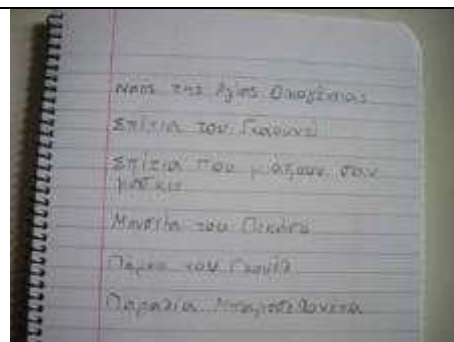 Ναός της Αγίας Οικογένειας
Σπίτια του Γκαουντί
Σπίτια που μοιάζουν σαν
Μουσεία του Πικάσο
Πάρκο του Γκουέλ
Παραλία Μπαρσελονέτα